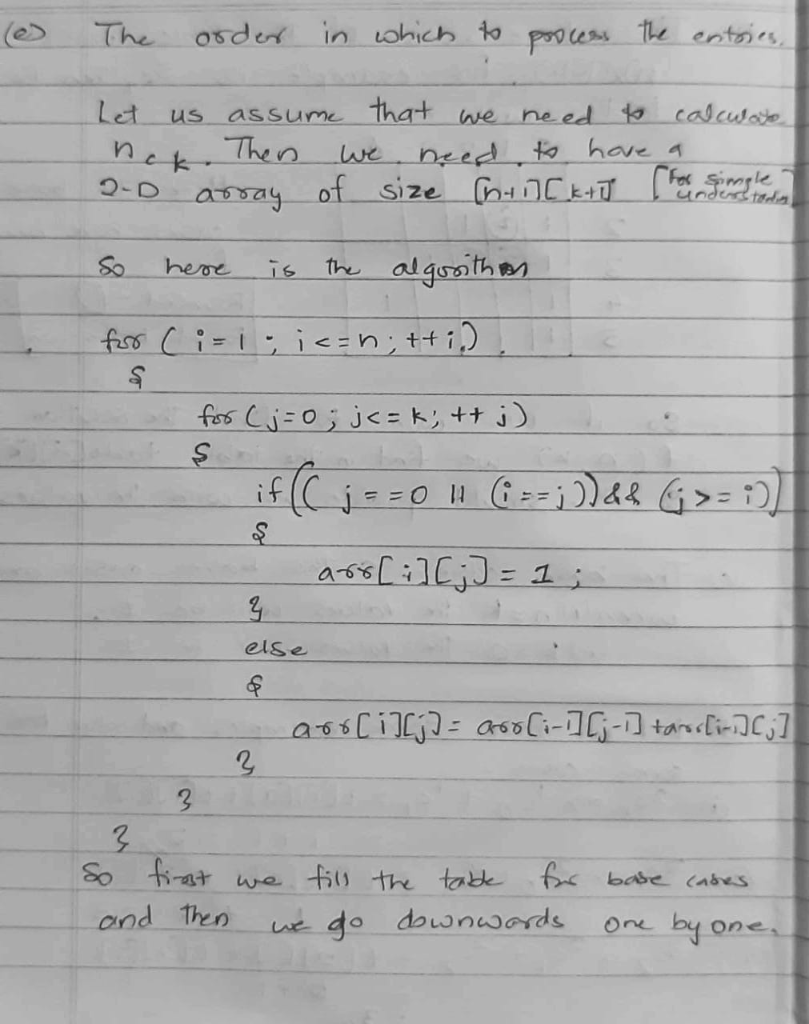 (e) The order in which to process the entries.
Let us assume that we need to calculate
nck. Then we need to have a
2-D array of size [n+1][k+1] [for simple understanding]
So here is the algorithm
for (i=1; i<=n; ++i)
{
for (j=0; j<=k; ++j)
{
if ((j==0 || (i==j)) && (j>=i))
{
arr[i][j] = 1;
}
else
{
arr[i][j] = arr[i-1][j-1] + arr[i-1][j]
}
}
}
So first we fill the table for base cases
and then we go downwards one by one.